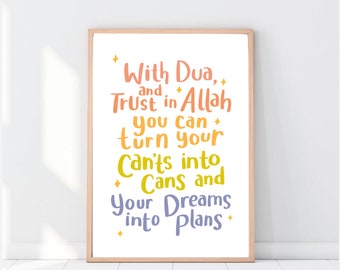 With Dua,
and
Trust in Allah
you can
turn your
Can'ts into
Cans and
Your Dreams
into Plans